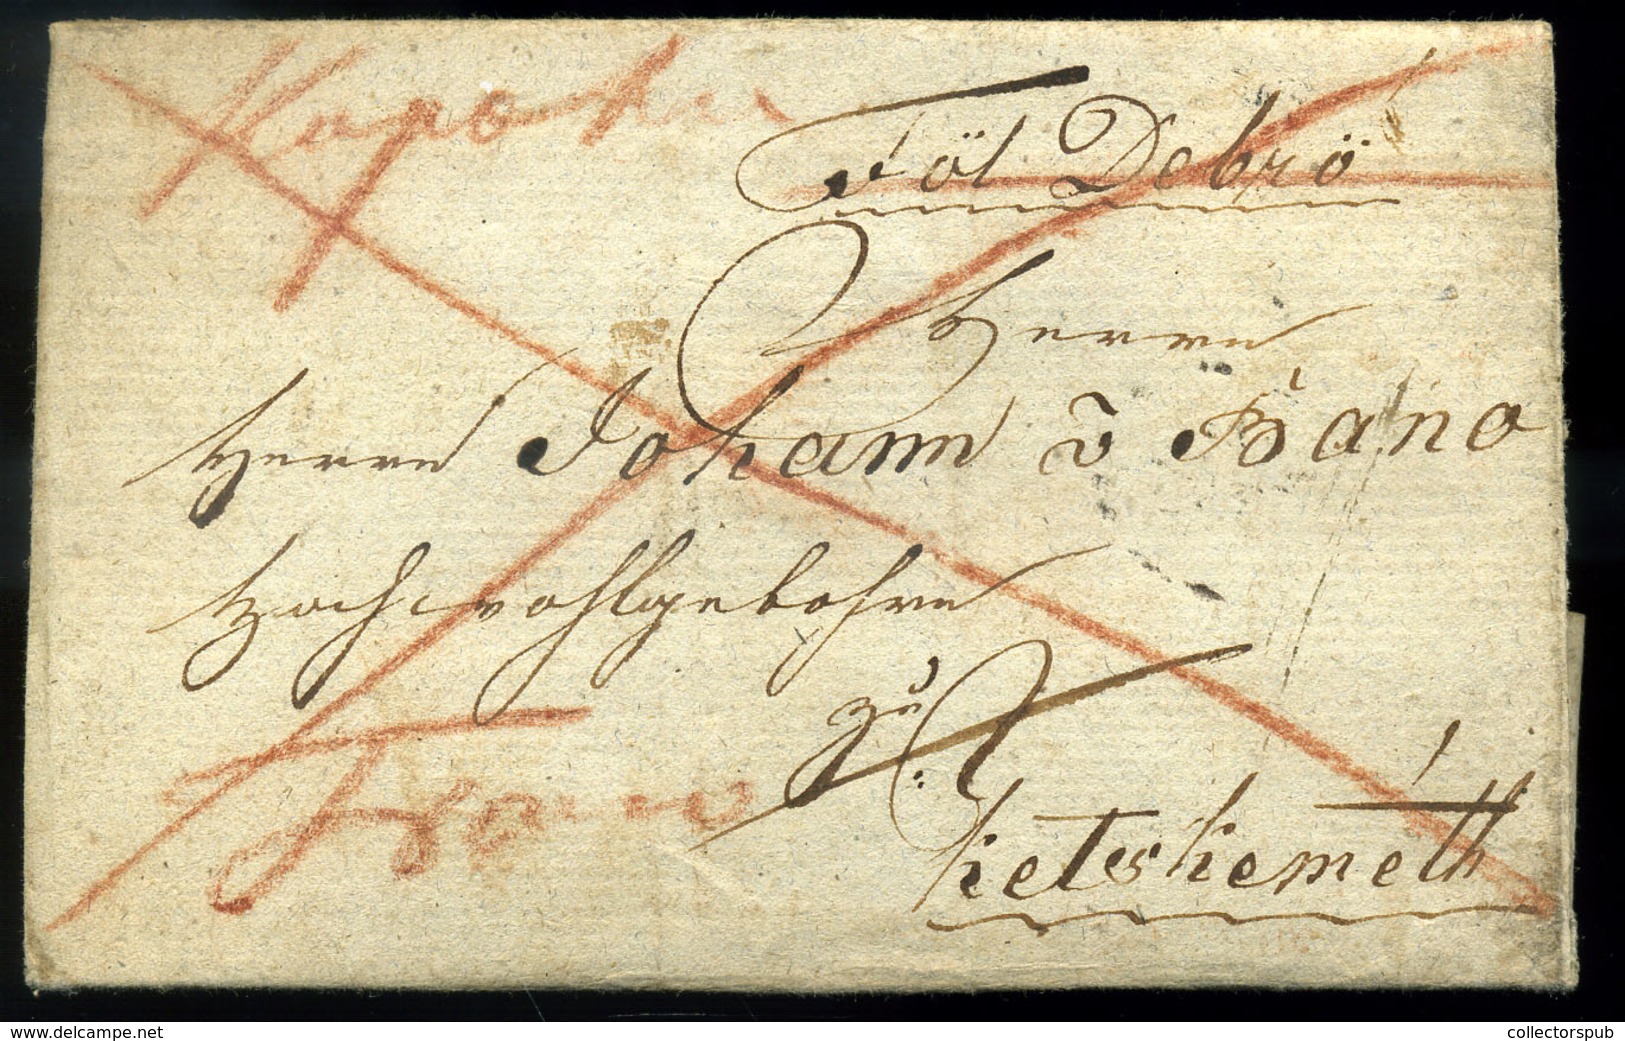 Föl Debrö
Herrn
Herrn Johann v Bano
Hochwohlgebohrn
zu
Ketskeméth
Franco
delcampe.net
collectorspub